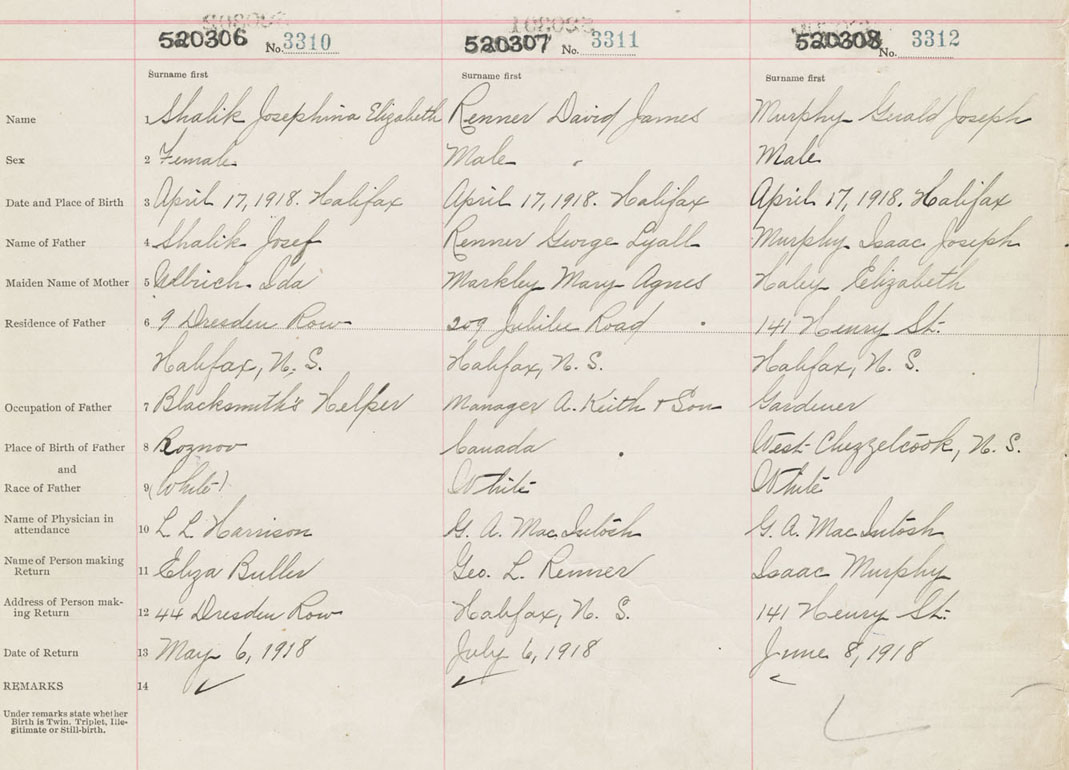 520306 No. 3310 520307 No. 3311 520308 No. 3312
Surname first Surname first Surname first
Name 1 Shalik Josephina Elizabeth Renner David James Murphy Gerald Joseph
Sex 2 Female Male Male
Date and Place of Birth 3 April 17, 1918. Halifax April 17, 1918. Halifax April 17, 1918. Halifax
Name of Father 4 Shalik Josef Renner George Lyall Murphy Isaac Joseph
Maiden Name of Mother 5 Ida Markley Mary Agnes Haley Elizabeth
Residence of Father 6 9 Dresden Row 209 Jubilee Road 141 Henry St.
Halifax, N. S. Halifax, N. S. Halifax, N. S.
Occupation of Father 7 Blacksmith's Helper Manager A. Keith & Son Gardener
Place of Birth of Father 8 Roznov Canada West Chezzelcook, N. S.
and
Race of Father 9 (White) White White
Name of Physician in
attendance 10 L L Harrison G. A. MacIntosh G. A. MacIntosh
Name of Person making
Return 11 Eliza Buller Geo. L. Renner Isaac Murphy
Address of Person mak-
ing Return 12 44 Dresden Row Halifax, N. S. 141 Henry St.
Date of Return 13 May 6, 1918 July 6, 1918 June 8, 1918
REMARKS 14
Under remarks state whether
Birth is Twin. Triplet, Ille-
gitimate or Still-birth.